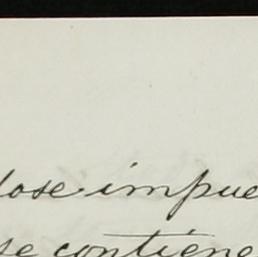 dose impue
se contiene